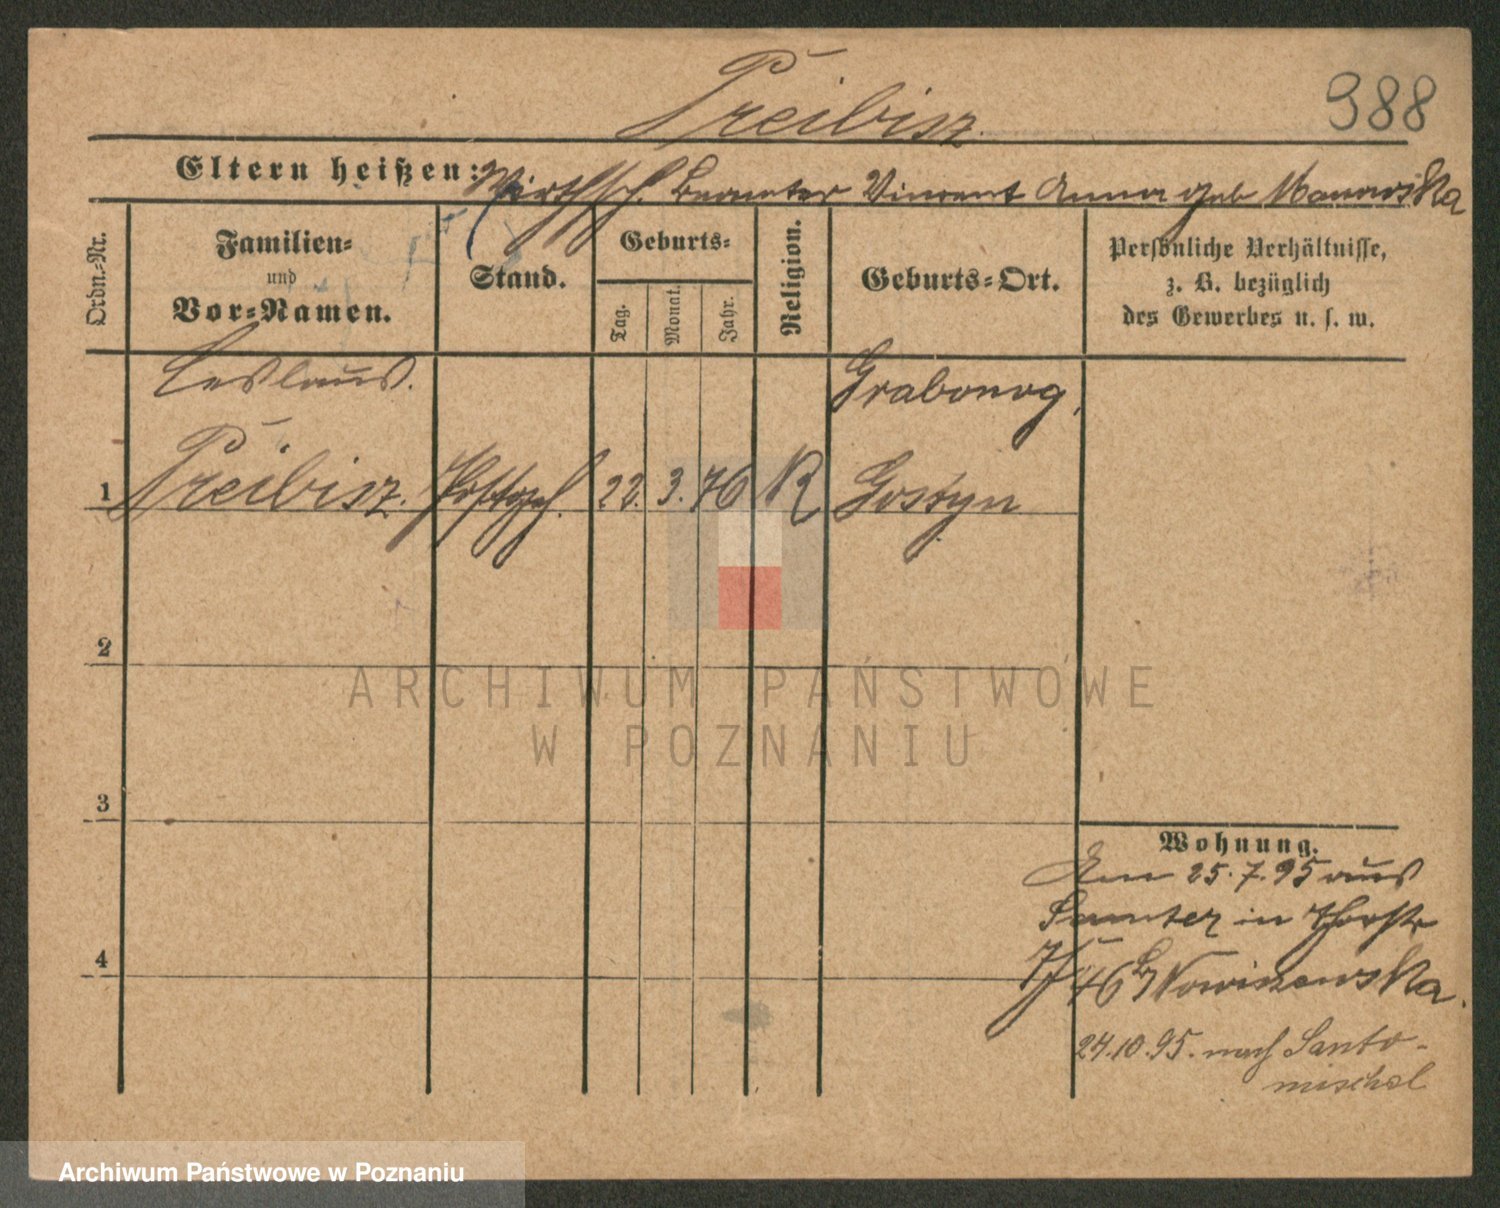 Preibisz.
988
Eltern heißen: Wirthsch. Beamter Vincent Anna geb
Ordn.-Nr.
Familien-
und
Vor-Namen.
Stand.
Geburts-
Tag.
Monat.
Jahr.
Religion.
Geburts-Ort.
Persönliche Verhältnisse,
z. B. bezüglich
des Gewerbes u. s. w.
Leslaus.
Grabonog,
1 Preibisz. 22. 3. 76 R Gostyn
2
3
4
Wohnung.
Am 25.7.95 aus
Samter in
46 b/ Nowiszewska.
24.10.95. nach Santo-
mischel
ARCHIWUM PAŃSTWOWE
W POZNANIU
Archiwum Państwowe w Poznaniu